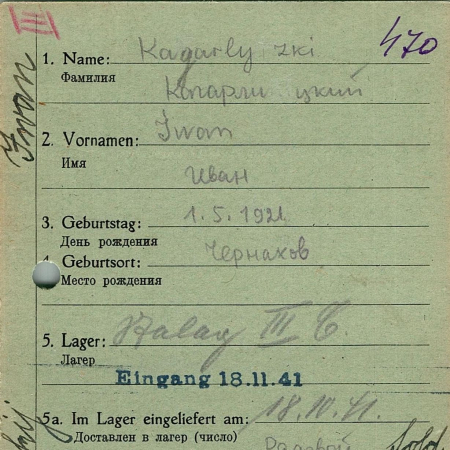 III
470
Iwan
1. Name: Kagarly zki
Фамилия
Кагарлицкий
2. Vornamen: Iwan
Имя
Иван
3. Geburtstag: 1.5.1921
День рождения
4. Geburtsort: Чернахов
Место рождения
5. Lager: Stalag III C.
Лагерь
Eingang 18.11.41
5a. Im Lager eingeliefert am: 18.10.41.
Доставлен в лагер (число)
Рядовой
Sold